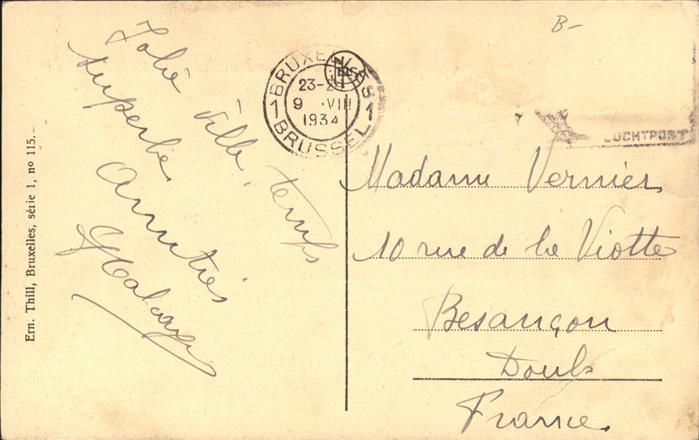 B-
Jolie ville, temps
superbe.
Amitiés
BRUXELLES 1
23-2
9 VIII
1934
1 BRUSSEL
LUCHTPOST
Madame Vernier
10 rue de la Viotte
Besançon
Doubs
France.
Ern. Thill, Bruxelles, série 1, nº 115.